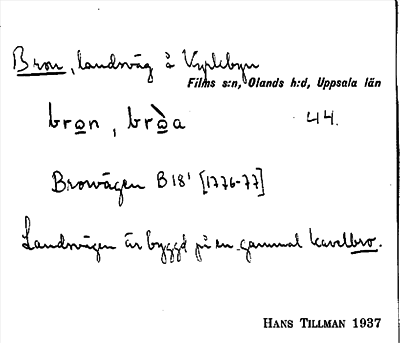 Bron, landsväg å Vyplebyn
Films s:n, Olands h:d, Uppsala län
bron, bròa 44.
Brovägen B 18¹ [1776-77]
Landsvägen är byggd på en gammal kavelbro.
HANS TILLMAN 1937